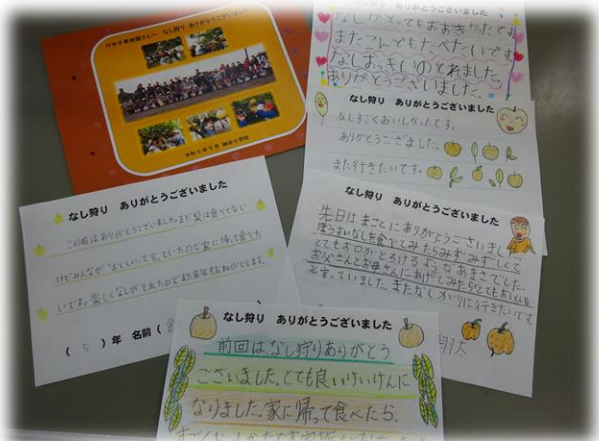 なし狩り ありがとうございました
令和５年９月
なし狩り ありがとうございました
なしがとってもおおきかったです
またこんどもたべたいです
なしおっきいのとれました。
ありがとうございました。
なし狩り ありがとうございました
なしすごくおいしかったです。
ありがとうございました。
また行きたいです。
なし狩り ありがとうございました
この前はありがとうございました。まだ梨は食べてない
けどみんなが
と言っていたので家に帰って食べた
いです。楽しくなしがとれたのでまた来年もおねがいします。
( 5 ) 年 名前 (
なし狩り ありがとうございました
先日はまことにありがとうございました
なしを食べてみたらみずみずしくて
とてもお口がとろけるようなあまさでした。
お父さんとお母さんにあげてみたらとてもおいしい
と言っていました。またなしがりに行きたいです
翔太
なし狩り ありがとうございました
前回は、なし狩りありがとう
ございました。とても良いけいけんに
なりました。家に帰って食べたら、